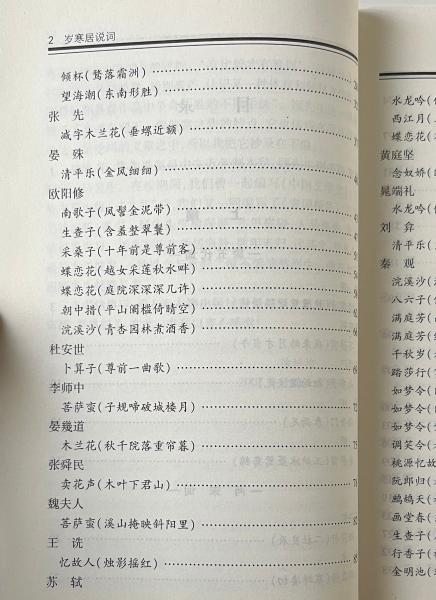 2 岁寒居说词
倾杯(鹜落霜洲)
望海潮(东南形胜)
张 先
减字木兰花(垂螺近额)
晏 殊
清平乐(金风细细)
欧阳修
南歌子(凤髻金泥带)
生查子(含羞整翠鬟)
采桑子(十年前是尊前客)
蝶恋花(越女采莲秋水畔)
蝶恋花(庭院深深深几许)
朝中措(平山阑槛倚晴空)
浣溪沙(青杏园林煮酒香)
杜安世
卜算子(尊前一曲歌)
李师中
菩萨蛮(子规啼破城楼月)
晏幾道
木兰花(秋千院落重帘暮)
张舜民
卖花声(木叶下君山)
魏夫人
菩萨蛮(溪山掩映斜阳里)
王 诜
忆故人(烛影摇红)
苏 轼
水龙吟(
西江月(
蝶恋花(
黄庭坚
念奴娇(
晁端礼
水龙吟(
刘 弇
清平乐(
秦 观
浣溪沙(
八六子(
满庭芳(
满庭芳(
千秋岁(
踏莎行(
如梦令(
如梦令(
如梦令(
调笑令(
桃源忆故
阮郎归(
鹧鸪天(
画堂春(
生查子(
行香子(
金明池(